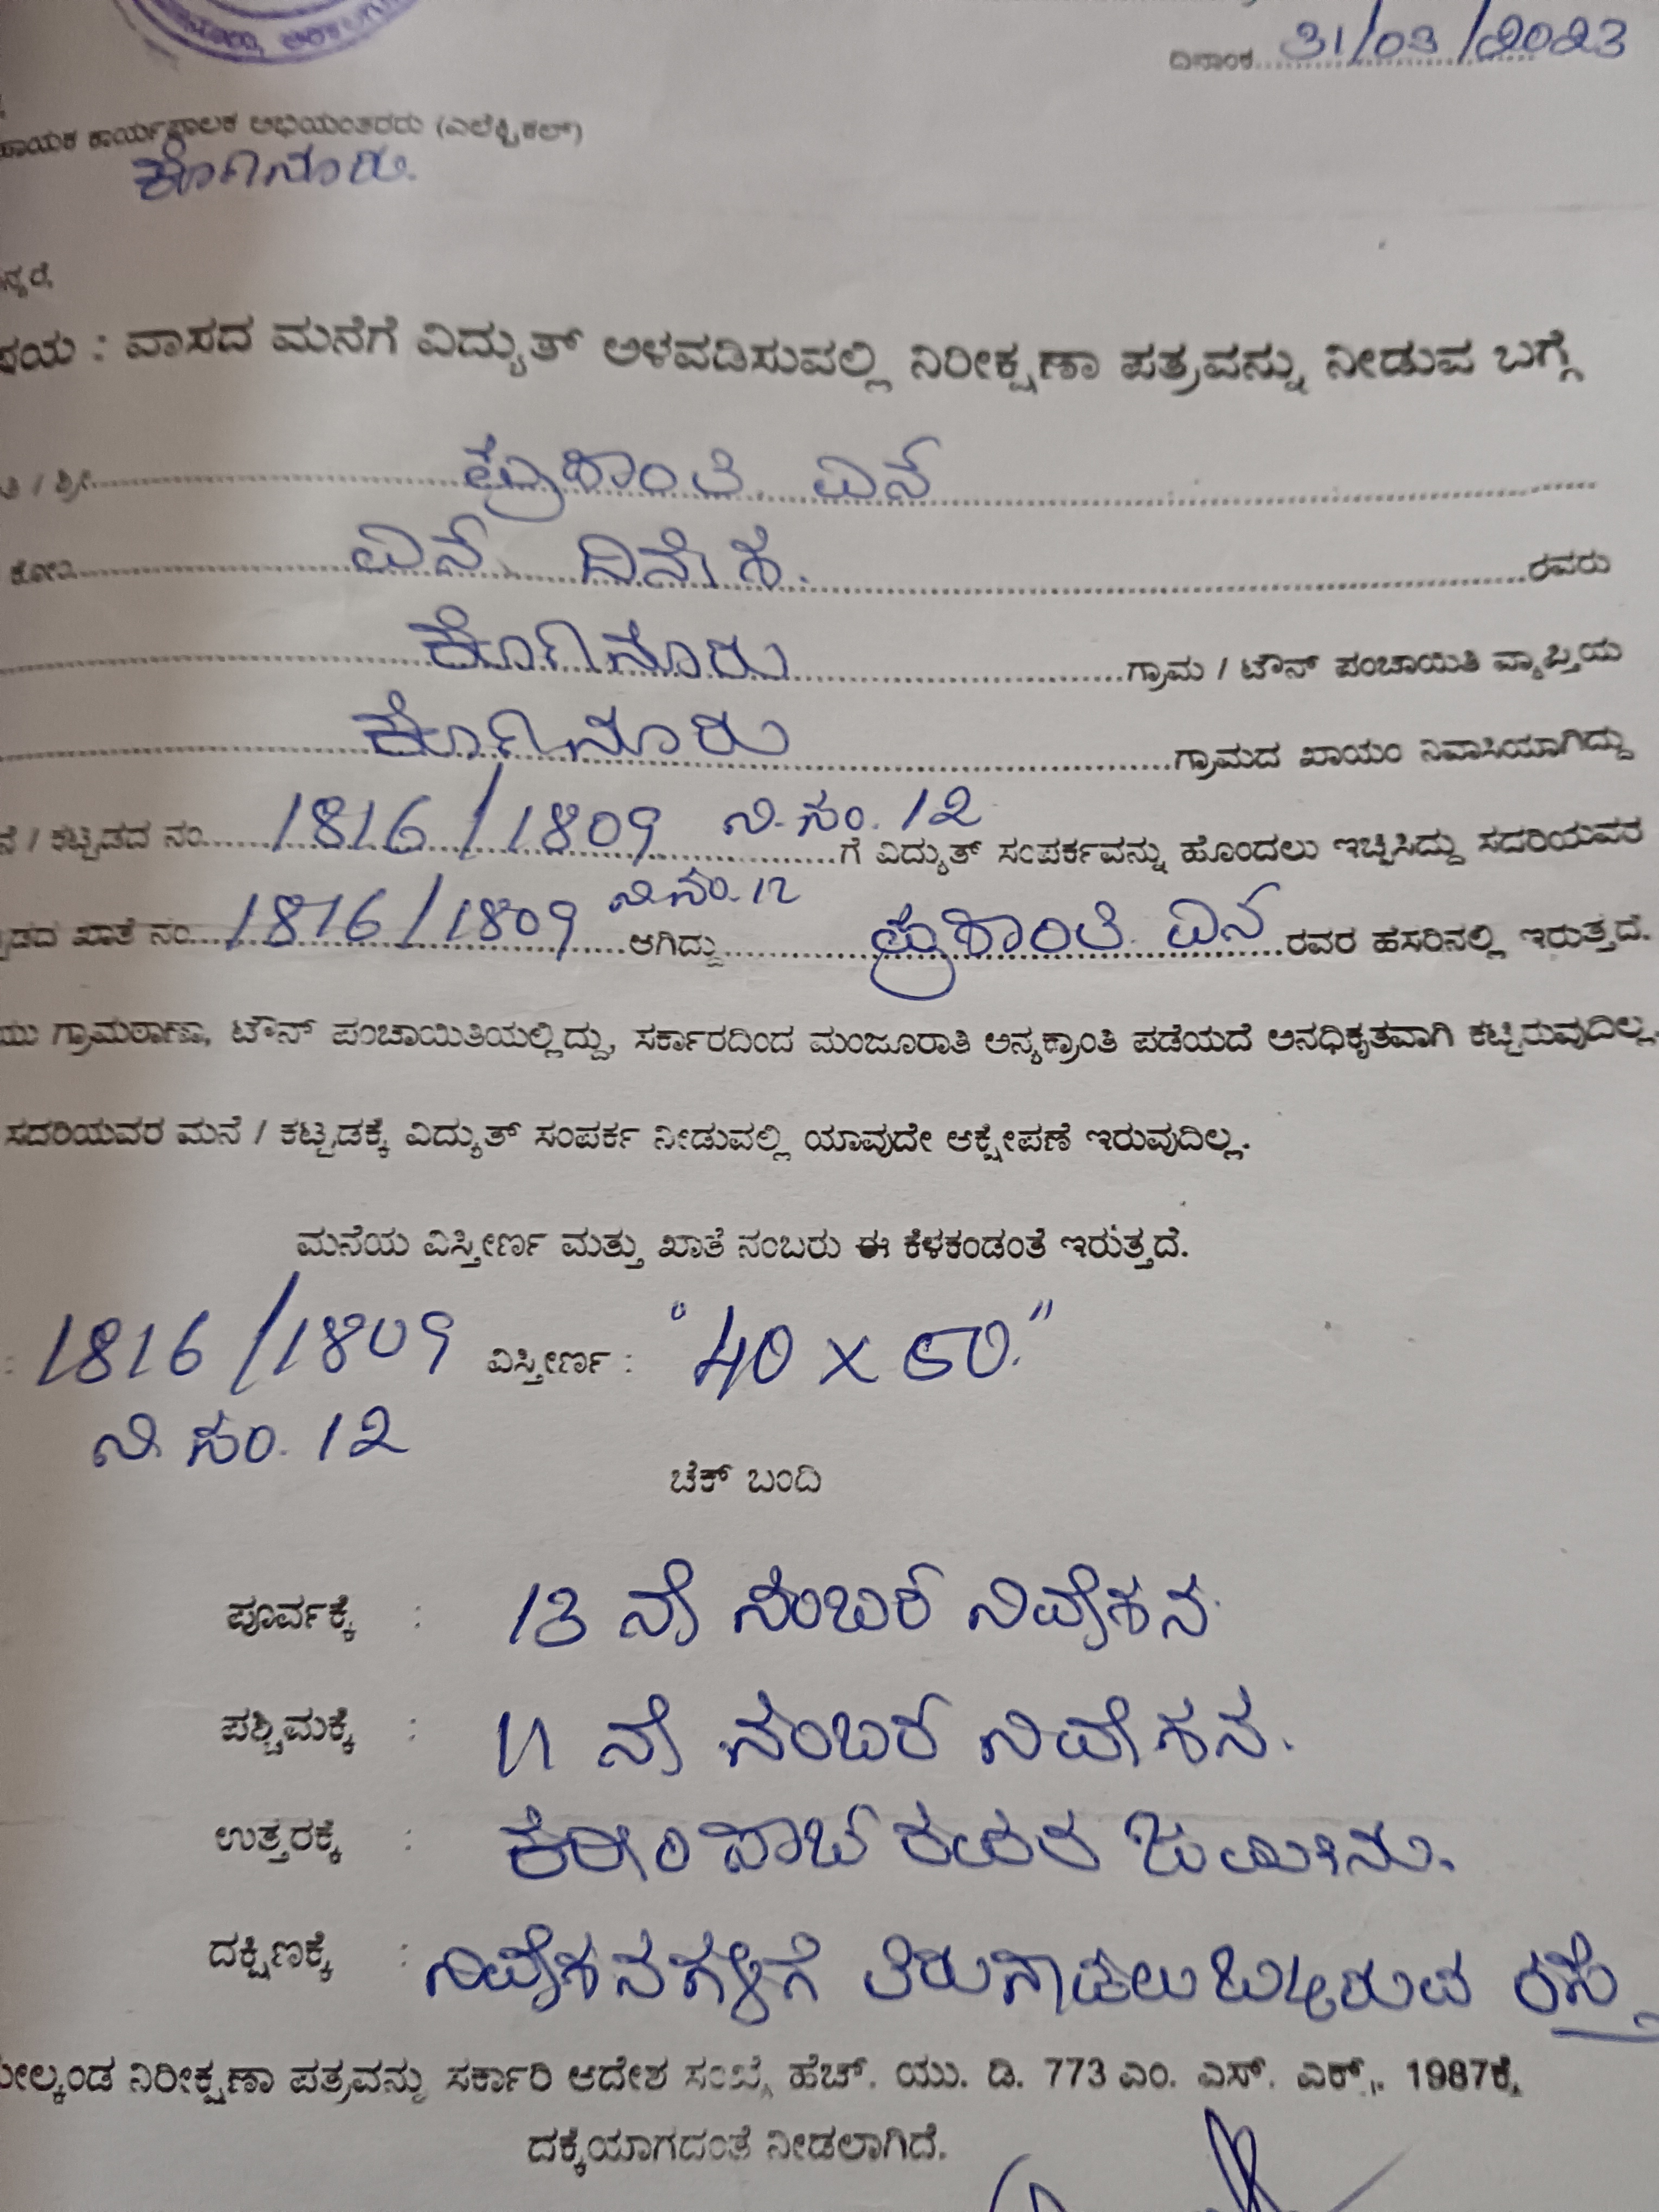 ದಿನಾಂಕ 31/03/2023
ಕಾರ್ಯಪಾಲಕ ಅಭಿಯಂತರರು (ಎಲೆಕ್ಟ್ರಿಕಲ್)
ಕೊಗನೂರು.
: ವಾಸದ ಮನೆಗೆ ವಿದ್ಯುತ್ ಅಳವಡಿಸುವಲ್ಲಿ ನಿರೀಕ್ಷಣಾ ಪತ್ರವನ್ನು ನೀಡುವ ಬಗ್ಗೆ
/ ಶ್ರೀ ಪ್ರಶಾಂತಿ. ಎನ್
ಕೋಂ ಎನ್. ದಿನೇಶ. ರವರು
ಕೊಗನೂರು ಗ್ರಾಮ / ಟೌನ್ ಪಂಚಾಯಿತಿ ವ್ಯಾಪ್ತಿಯ
ಕೊಗನೂರು ಗ್ರಾಮದ ಖಾಯಂ ನಿವಾಸಿಯಾಗಿದ್ದು
/ ಕಟ್ಟಡದ ನಂ 1816/1809 ನಿ. ಸಂ. 12 ಗೆ ವಿದ್ಯುತ್ ಸಂಪರ್ಕವನ್ನು ಹೊಂದಲು ಇಚ್ಛಿಸಿದ್ದು ಸದರಿಯವರ
ಖಾತೆ ನಂ 1816/1809 ನಿ. ಸಂ. 12 ಆಗಿದ್ದು ಪ್ರಶಾಂತಿ. ಎನ್ ರವರ ಹೆಸರಿನಲ್ಲಿ ಇರುತ್ತದೆ.
ಗ್ರಾಮಠಾಣಾ, ಟೌನ್ ಪಂಚಾಯಿತಿಯಲ್ಲಿದ್ದು, ಸರ್ಕಾರದಿಂದ ಮಂಜೂರಾತಿ ಅನ್ಯಕ್ರಾಂತಿ ಪಡೆಯದೆ ಅನಧಿಕೃತವಾಗಿ ಕಟ್ಟಿರುವುದಿಲ್ಲ.
ಸದರಿಯವರ ಮನೆ / ಕಟ್ಟಡಕ್ಕೆ ವಿದ್ಯುತ್ ಸಂಪರ್ಕ ನೀಡುವಲ್ಲಿ ಯಾವುದೇ ಆಕ್ಷೇಪಣೆ ಇರುವುದಿಲ್ಲ.
ಮನೆಯ ವಿಸ್ತೀರ್ಣ ಮತ್ತು ಖಾತೆ ನಂಬರು ಈ ಕೆಳಕಂಡಂತೆ ಇರುತ್ತದೆ.
: 1816/1809 ವಿಸ್ತೀರ್ಣ : "40 x 50"
ನಿ. ಸಂ. 12
ಚೆಕ್ ಬಂದಿ
ಪೂರ್ವಕ್ಕೆ : 13 ನೇ ನಂಬರ್ ನಿವೇಶನ.
ಪಶ್ಚಿಮಕ್ಕೆ : 11 ನೇ ನಂಬರ್ ನಿವೇಶನ.
ಉತ್ತರಕ್ಕೆ : ಕರೀಂ ಸಾಬ್ ರವರ ಜಮೀನು.
ದಕ್ಷಿಣಕ್ಕೆ : ನಿವೇಶನಗಳಿಗೆ ತಿರುಗಾಡಲು ಬಿಟ್ಟಿರುವ ರಸ್ತೆ
ಮೇಲ್ಕಂಡ ನಿರೀಕ್ಷಣಾ ಪತ್ರವನ್ನು ಸರ್ಕಾರಿ ಆದೇಶ ಸಂಖ್ಯೆ ಹೆಚ್. ಯು. ಡಿ. 773 ಎಂ. ಎಸ್. ಎಕ್ಸ್. 1987ಕ್ಕೆ
ದಕ್ಕೆಯಾಗದಂತೆ ನೀಡಲಾಗಿದೆ.